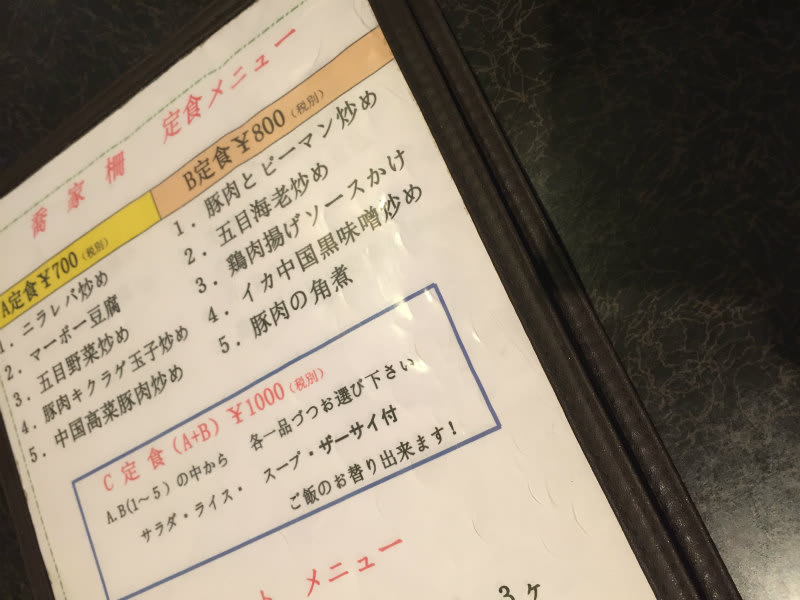 喬家柵 定食メニュー
A定食¥700(税別)
1. ニラレバ炒め
2. マーボー豆腐
3. 五目野菜炒め
4. 豚肉キクラゲ玉子炒め
5. 中国高菜豚肉炒め
B定食¥800(税別)
1. 豚肉とピーマン炒め
2. 五目海老炒め
3. 鶏肉揚げソースかけ
4. イカ中国黒味噌炒め
5. 豚肉の角煮
C定食(A+B)¥1000(税別)
A.B(1~5)の中から 各一品づつお選び下さい
サラダ・ライス・ スープ・ザーサイ付
ご飯のお替り出来ます!
メニュー
3ヶ